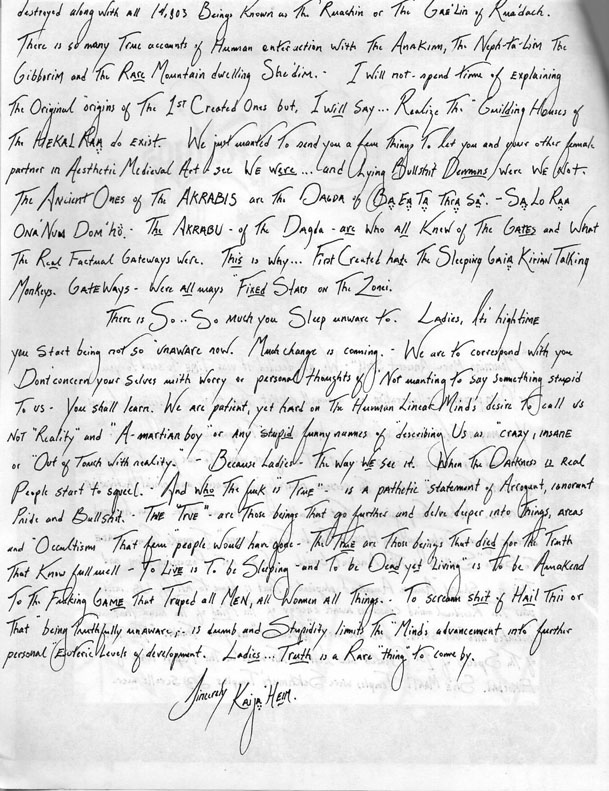 destroyed along with all 1st,803 Beings Known as The 'Ruachin or The Gaa'Lin of Rua'dach.
There is so many True accounts of Human enteruction with The Anakinn, The Neph-ta-Lim The
Gibborim and The Rare Mountain dwelling She'dim. - I will not - spend time of explaining
The Original origins of The 1st Created Ones but, I will Say... Realize The "Guilding Houses of
The HEKAL RAA do exist. We just wanted To send you a few Things To let you and your other female
partner in Aesthetic Medieval Art - see WE were... and Lying Bullshit Demmns were WE Not.
The Ancient Ones of The AKRABIS are The DAGDA of BA EA TA Thra SA. - SA LO RAA
ONA'Num Dom'hö. - The AKRABU - of The Dagda - are who all Knew of The GATES and What
The Real Factual Gateways were. This is Why... First Created hate The Sleeping Gaia Kirian Talking
Monkeys. GATEWAYS - Were All ways "Fixed Stars on The Zonei.
There is So.. So Much you Sleep unware to. Ladies, It's hightime
you Start being not so 'unaware now. Much change is coming. - We are to correspond with you
Dont concern your Selves with Worry or personal Thoughts of "Not wanting to Say something stupid
To us - You shall learn. We are patient, yet hard on The Human Linear Mind's desire To call us
NoT "Reality" and "A-martian boy" or Any stupid funny names of "describing Us as "crazy, insane
or "Out of Touch with reality." Because Ladies - The way WE see it. When The Darkness is Real
People start to squeel. - And Who The fuck is "True" - is a pathetic "statement of Arrogant, ignorant
Pride and Bullshit. - THE "TrUE" - are Those beings That go further and delve deeper into Things, areas
and "Occultism That few people Would have gone - The True are Those beings That died for The Truth
That Know full well - To LIVE is To be Sleeping - and To be Dead yet Living" is To be Awakend
To Th Fucking GAME That Traped all MEN, All Women all Things. - To scream shit of Hail This or
That "being Truthfully unaware, - is dumb and Stupidity limits The "Mind's advancement into further
personal "Esoteric Levels of development. Ladies... Truth is a Rare "thing" to come by.
Sincerely Kaija'Heim.